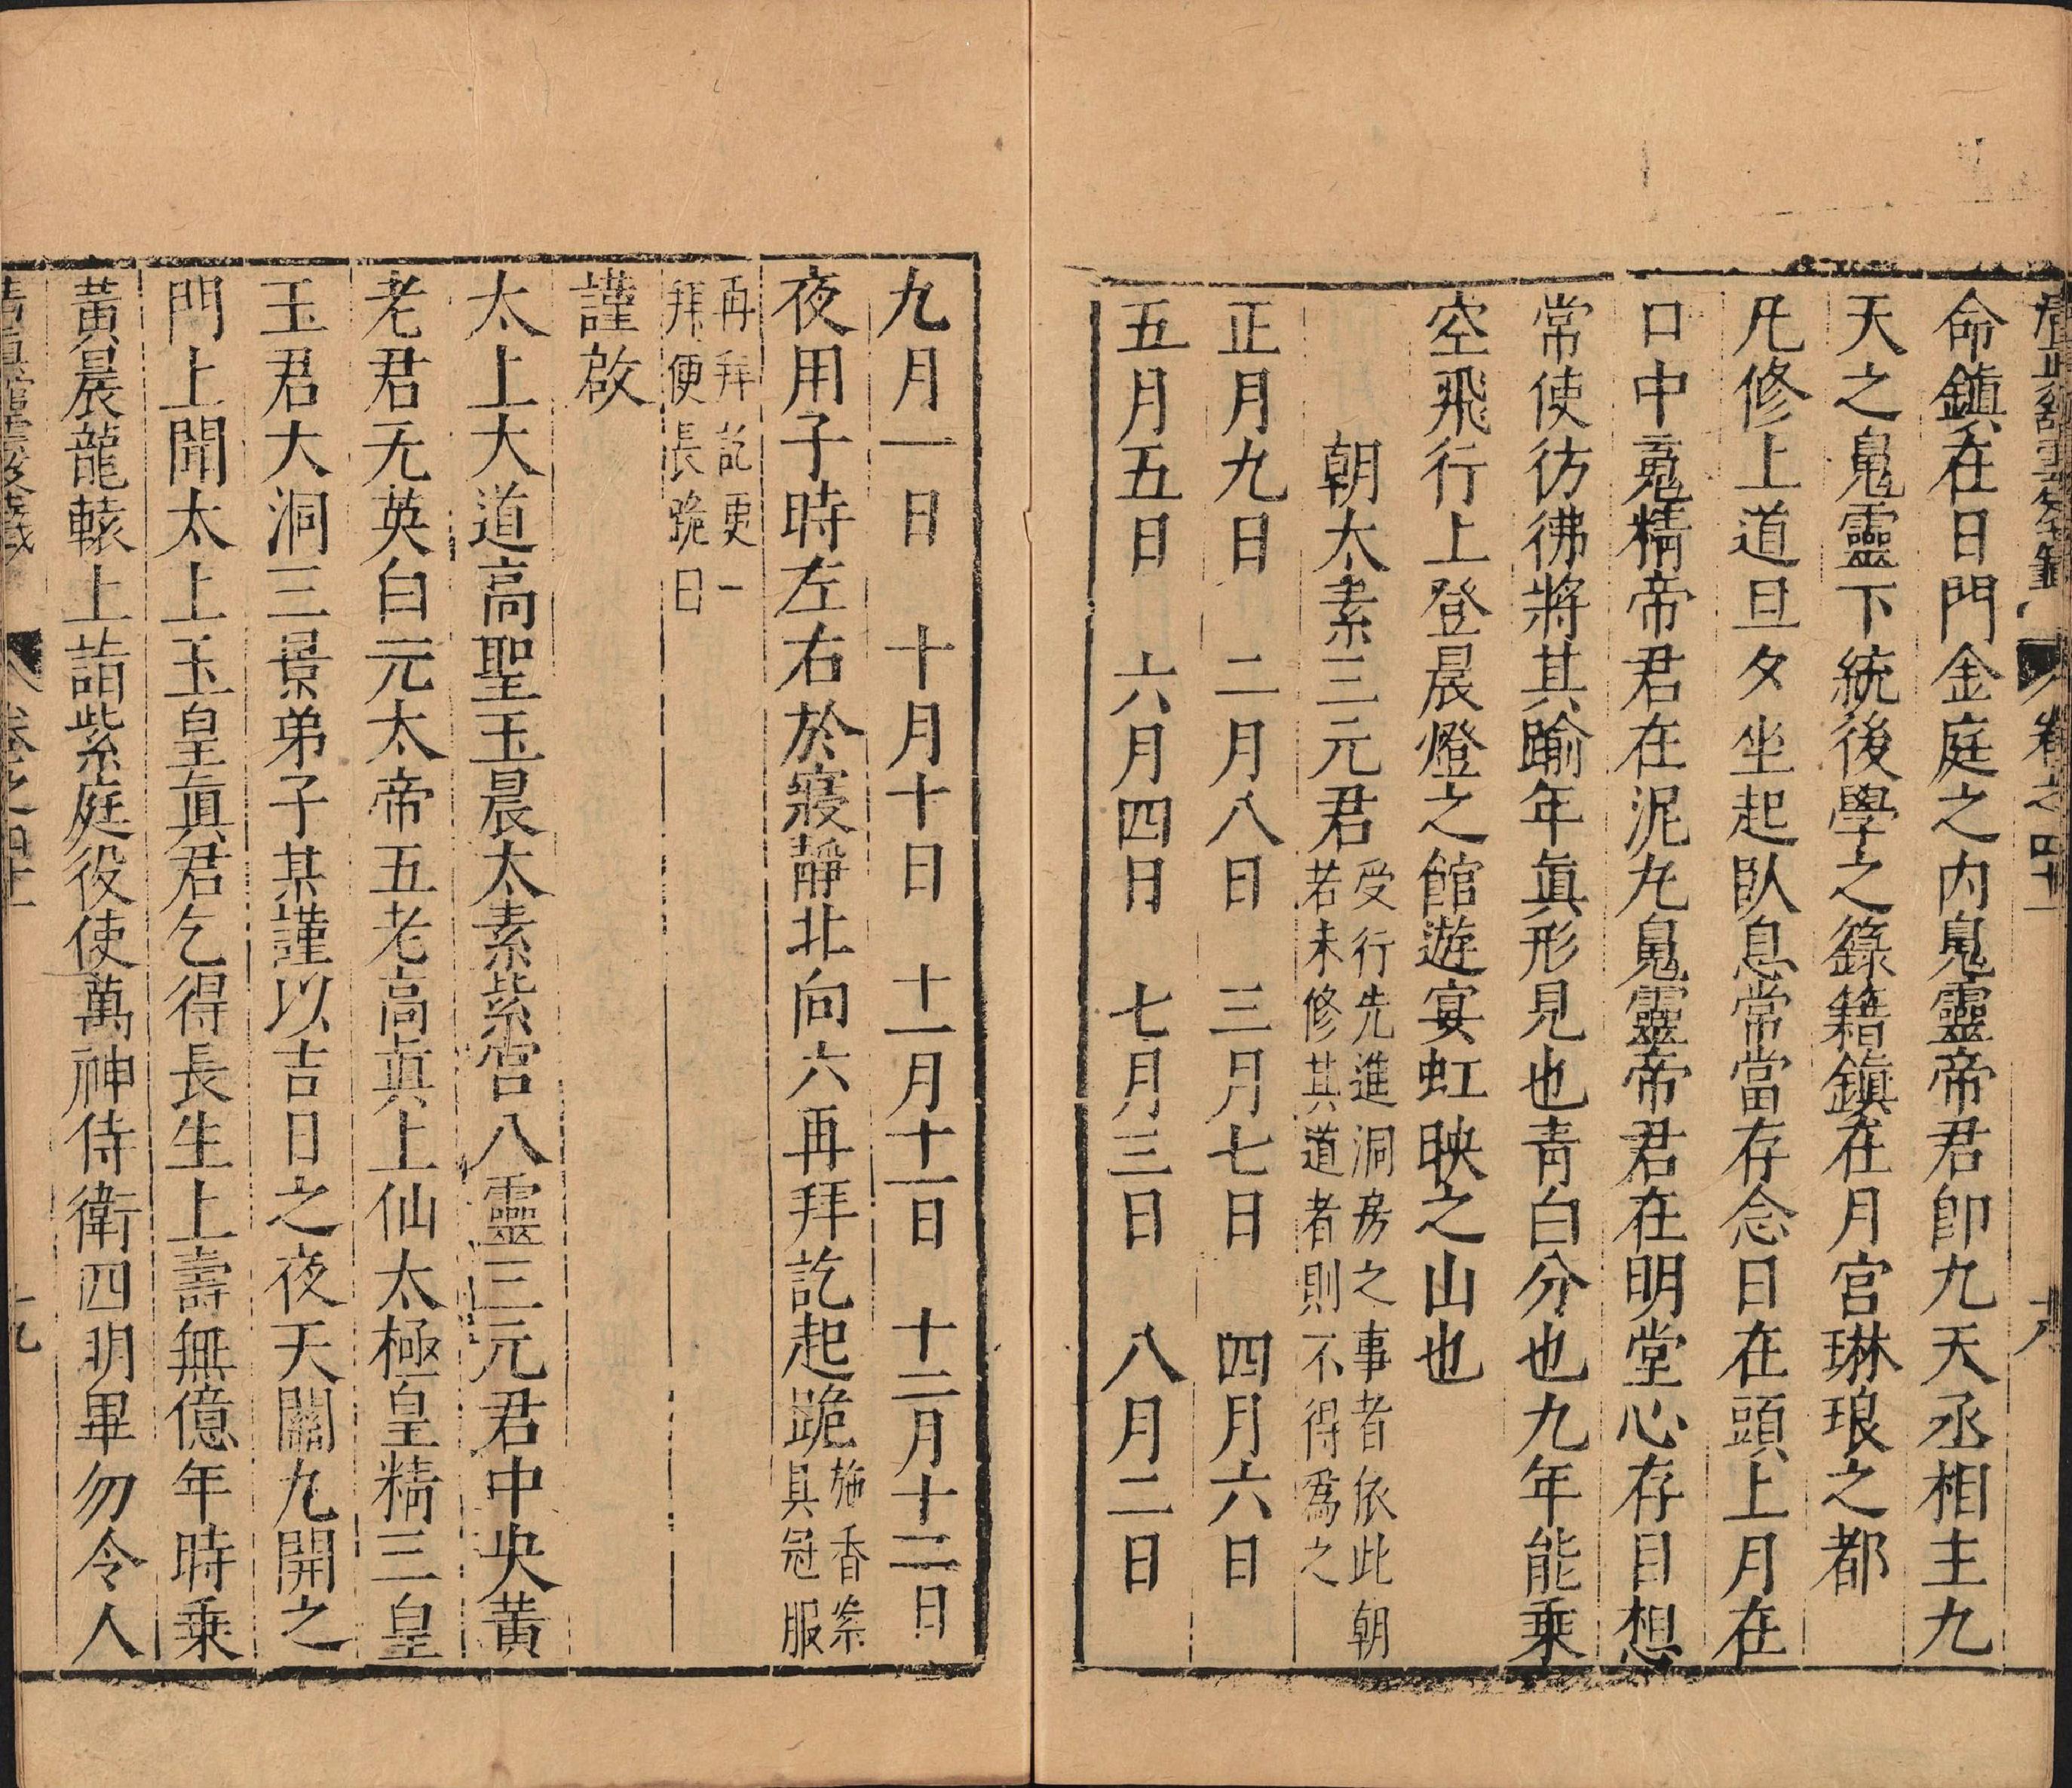 卷之四十一
十八
命鎮在日門金庭之內䰟靈帝君卽九天丞相主九
天之䰟靈下統後學之籙籍鎮在月宮琳琅之都
凡修上道旦夕坐起臥息常當存念日在頭上月在
口中䰟精帝君在泥丸䰟靈帝君在明堂心存目想
常使彷彿將其踰年眞形見也靑白分也九年能乘
空飛行上登晨燈之館遊宴虹映之山也
朝太素三元君受行先進洞房之事者依此朝若未修其道者則不得爲之
正月九日 二月八日 三月七日 四月六日
五月五日 六月四日 七月三日 八月二日
九月一日 十月十日 十一月十一日 十二月十二日
夜用子時左右於寢靜北向六再拜訖起跪施香案具冠服
再拜訖更一拜便長跪曰
謹啟
太上大道高聖玉晨太素紫宮八靈三元君中央黃
老君无英白元太帝五老高眞上仙太極皇精三皇
玉君大洞三景弟子某謹以吉日之夜天關九開之
門上聞太上玉皇眞君乞得長生上壽無億年時乘
黃晨龍轅上詣紫庭役使萬神侍衛四明畢勿令人
卷之四十一
十九